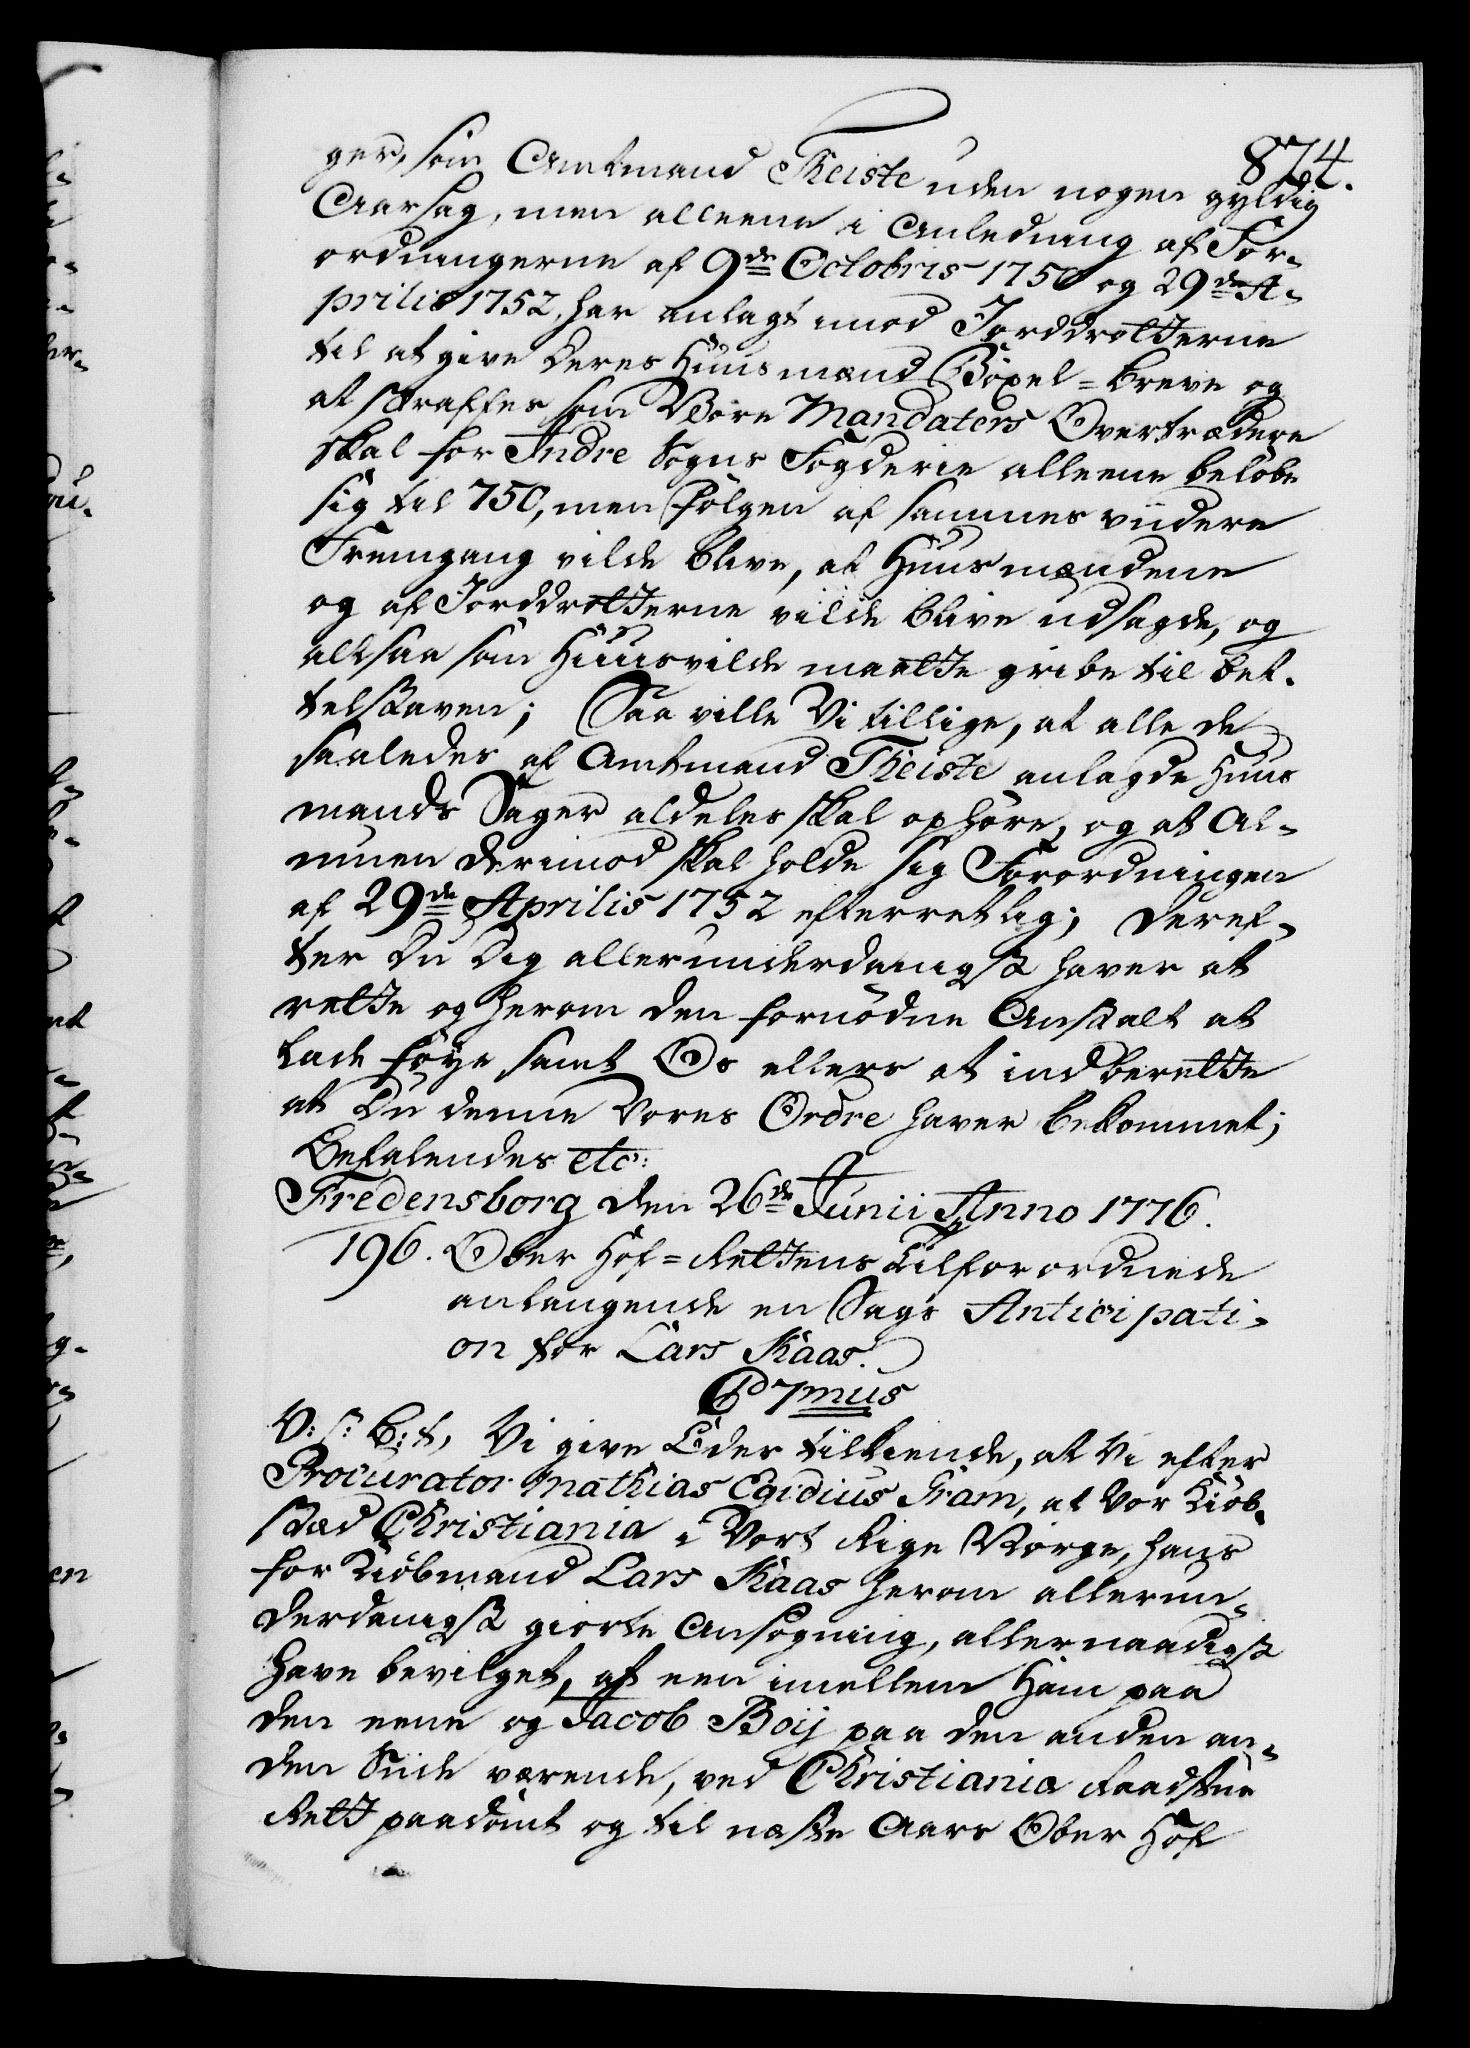 874.
ger, som Amtmand Theiste uden nogen gyldig
Aarsag, men alleene i Anledning af For-
ordningerne af 9de Octobris 1750 og 29de A-
prilis 1752, har anlagt imod Jorddrotterne
til at give deres Huusmænd Böxel-breve og
at straffes som Vore Mandaters Overtrædere
skal for Indre Sogns Fogderie alleene belöbe
sig til 750, men Fölgen af sammes viidere
Fremgang vilde blive, at Huusmændene
og af Jorddrotterne vilde blive udsagde, og
altsaa som Huusvilde maatte gribe til bet-
telstaven; Saa ville Vi tillige, at alle de
saaledes af Amtmand Theiste anlagde Huus
mands Sager aldeles skal ophöre, og at Al-
muen derimod skal holde sig Forordningen
af 29de Aprilis 1752 efterretlig; Deref-
ter Du Dig allerunderdanigst haver at
rette og herom den fornödne Anstalt at
lade föye samt Os ellers at indberette
at Du denne Vores Ordre haver bekommet;
Befalendes etc:
Fredensborg den 26de Junii Anno 1776.
196. Ober Hof-Rettens Tilforordnede
anlangende en Sags Anticipati-
on for Lars Kaas.
C 7mus
V: S: B: t, Vi give Eder tilkiende, at Vi efter
Procurator Mathias Egidius Fram, at Vor Kiöb-
stæd Christiania i Vort Rige Norge, hans
for Kiöbmand Lars Kaas herom allerun-
derdanigst giorte Ansögning, allernaadigst
have bevilget, at een imellem Ham paa
den eene og Jacob Boij paa den anden an-
den Side værende, ved Christiania Raadstue
Rett paadömt og til næste Aars Ober Hof